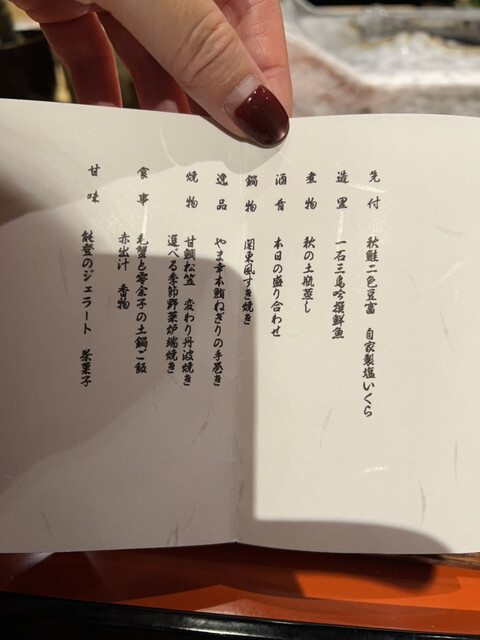 先付 秋鮭二色豆富 自家製塩いくら
造里 一石三鳥吟撰鮮魚
煮物 秋の土瓶蒸し
酒肴 本日の盛り合わせ
鍋物 関東風すき焼き
逸品 やま幸本鮪ねぎりの手巻き
焼物 甘鯛松笠 変わり丹波焼き
選べる季節野菜炉端焼き
食事 毛蟹と零余子の土鍋ご飯
赤出汁 香物
甘味 能登のジェラート 茶菓子